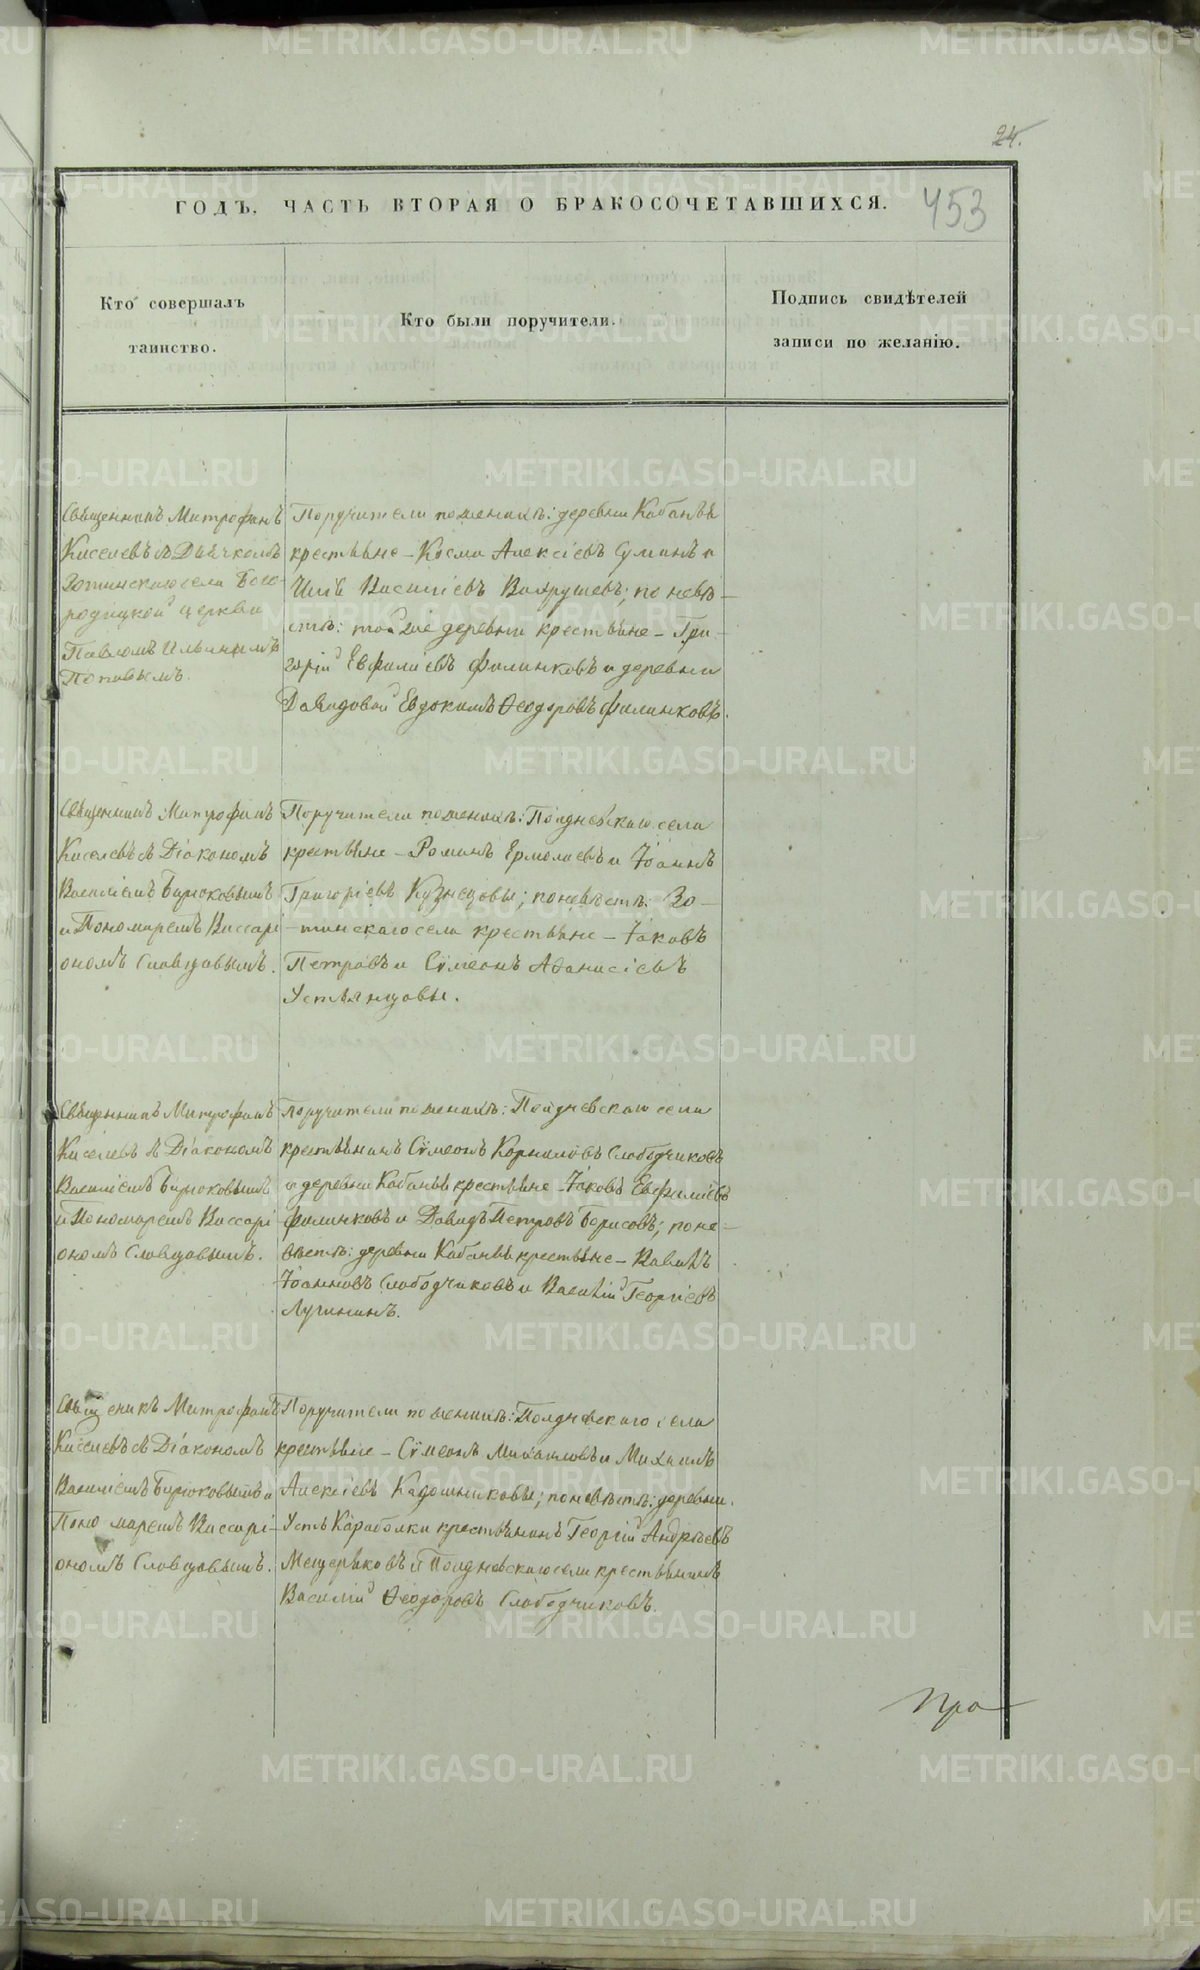 24.
ГОДЪ, ЧАСТЬ ВТОРАЯ О БРАКОСОЧЕТАВШИХСЯ.
453
Кто совершалъ
таинство.
Кто были поручители.
Подпись свидѣтелей
записи по желанію.
Священникъ Митрофанъ
Киселевъ съ Дьячкомъ
Зотинскаго села Бого-
родицкой церкви
Павломъ Ильинымъ
Поповымъ.
Поручители по женихѣ: деревни Кабаньѣ
крестьяне – Косма Алексіевъ Суминъ и
Илія Василіевъ Вахрушевъ; по невѣ–
стѣ: той же деревни крестьяне – Гри–
горій Евфиміевъ Филинковъ и деревни
Давыдовой Евдокимъ Ѳеодоровъ Филинковъ.
Священникъ Митрофанъ
Киселевъ съ Діакономъ
Василіемъ Бирюковымъ
и Пономаремъ Виссарі
ономъ Словцовымъ.
Поручители по женихѣ: Полдневскаго села
крестьяне – Романъ Ермолаевъ и Іоаннъ
Григоріевъ Кузнецовы; по невѣстѣ: Зо–
–тинскаго села крестьяне – Іаковъ
Петровъ и Сѵмеонъ Аѳанасіевъ
Устьянцовы.
Священникъ Митрофанъ
Киселевъ съ Діакономъ
Василіемъ Бирюковымъ
и Пономаремъ Виссарі
ономъ Словцовымъ.
Поручители по женихѣ: Полдневскаго села
крестьянинъ Сѵмеонъ Корниловъ Слободчиковъ
и деревни Кабаньѣ крестьяне – Іаковъ Евфиміевъ
Филинковъ и Давидъ Петровъ Борисовъ; по не–
вѣстѣ: деревни Кабаньѣ крестьяне –
Іоанновъ Слободчиковъ и Василій Георгіевъ
Лугининъ.
Священикъ Митрофанъ
Киселевъ съ Діакономъ
Василіемъ Бирюковымъ и
Пономаремъ Виссарі–
ономъ Словцовымъ.
Поручители по женихѣ: Полдневскаго села
крестьяне – Сѵмеонъ Михаиловъ и Михаилъ
Алексіевъ Кадошниковы; по невѣстѣ: деревни
Усть Караболки крестьянинъ Георгій Андреевъ
Мещеряковъ и Полдневскаго села крестьянинъ
Василій Ѳеодоровъ Слободчиковъ.
Про
METRIKI.GASO-URAL.RU